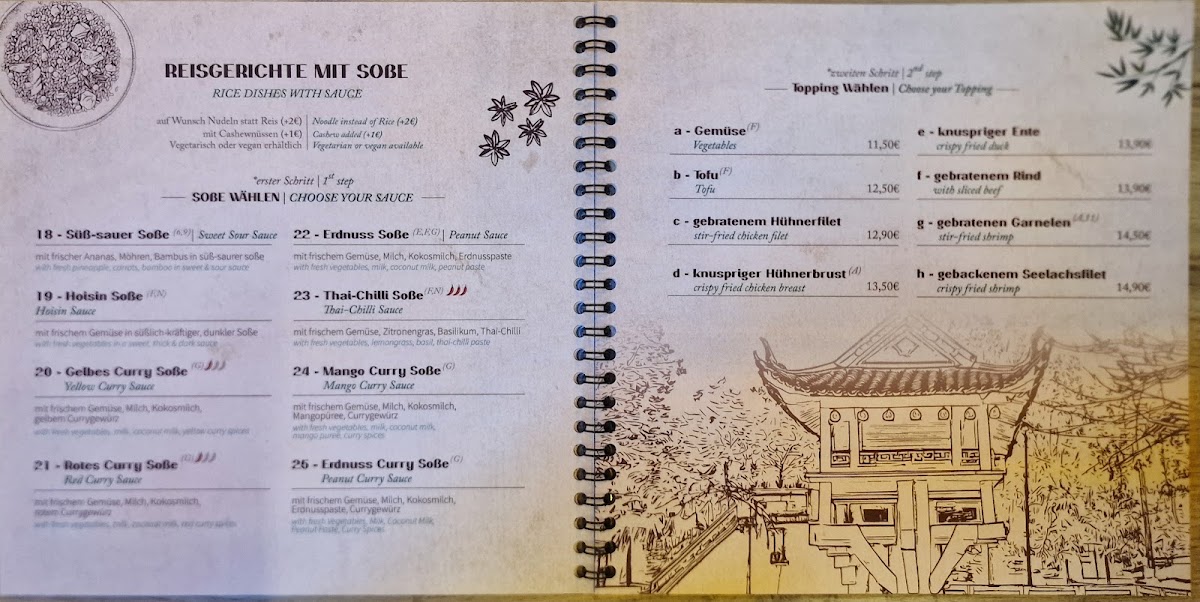 REISGERICHTE MIT SOßE
RICE DISHES WITH SAUCE
auf Wunsch Nudeln statt Reis (+2€) | Noodle instead of Rice (+2€)
mit Cashewnüssen (+1€) | Cashew added (+1€)
Vegetarisch oder vegan erhältlich | Vegetarian or vegan available
*erster Schritt | 1st step
SOßE WÄHLEN | CHOOSE YOUR SAUCE
18 - Süß-sauer Soße (6,9) | Sweet Sour Sauce
mit frischer Ananas, Möhren, Bambus in süß-saurer soße
with fresh pineapple, carrots, bamboo in sweet & sour sauce
19 - Hoisin Soße (F,N)
Hoisin Sauce
mit frischem Gemüse in süßlich-kräftiger, dunkler Soße
with fresh vegetables in a sweet, thick & dark sauce
20 - Gelbes Curry Soße (G)
Yellow Curry Sauce
mit frischem Gemüse, Milch, Kokosmilch,
gelbem Currygewürz
with fresh vegetables, milk, coconut milk, yellow curry spices
21 - Rotes Curry Soße (G)
Red Curry Sauce
mit frischem Gemüse, Milch, Kokosmilch,
rotem Currygewürz
with fresh vegetables, milk, coconut milk, red curry spices
22 - Erdnuss Soße (E,F,G) | Peanut Sauce
mit frischem Gemüse, Milch, Kokosmilch, Erdnusspaste
with fresh vegetables, milk, coconut milk, peanut paste
23 - Thai-Chilli Soße (F,N)
Thai-Chilli Sauce
mit frischem Gemüse, Zitronengras, Basilikum, Thai-Chilli
with fresh vegetables, lemongrass, basil, thai-chilli paste
24 - Mango Curry Soße (G)
Mango Curry Sauce
mit frischem Gemüse, Milch, Kokosmilch,
Mangopüree, Currygewürz
with fresh vegetables, milk, coconut milk,
mango pureé, curry spices
25 - Erdnuss Curry Soße (G)
Peanut Curry Sauce
mit frischem Gemüse, Milch, Kokosmilch,
Erdnusspaste, Currygewürz
with fresh Vegetables, Milk, Coconut Milk,
Peanut Paste, Curry Spices
*zweiten Schritt | 2nd step
Topping Wählen | Choose your Topping
a - Gemüse (F)
Vegetables 11,50€
b - Tofu (F)
Tofu 12,50€
c - gebratenem Hühnerfilet
stir-fried chicken filet 12,90€
d - knuspriger Hühnerbrust (A)
crispy fried chicken breast 13,50€
e - knuspriger Ente
crispy fried duck 13,90€
f - gebratenem Rind
with sliced beef 13,90€
g - gebratenen Garnelen
stir-fried shrimp 14,50€
h - gebackenem Seelachsfilet
crispy fried shrimp 14,90€